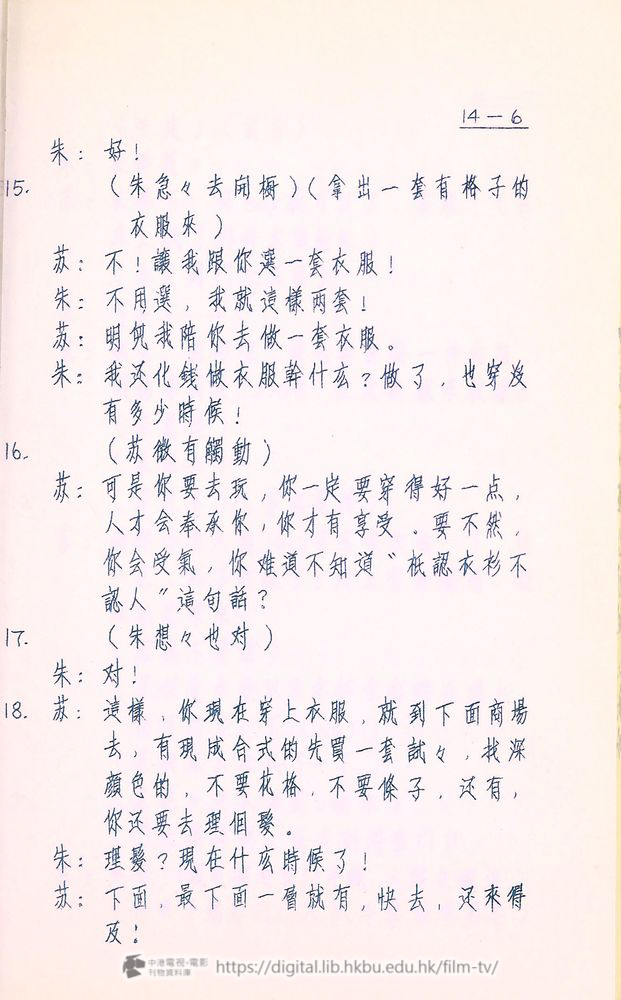 14-6
朱：好！
15. （朱急々去開橱）（拿出一套有格子的
衣服來）
苏：不！讓我跟你選一套衣服！
朱：不用選，我就這樣两套！
苏：明兒我陪你去做一套衣服。
朱：我还化钱做衣服幹什么？做了，也穿没
有多少時候！
16. （苏微有觸動）
苏：可是你要去玩，你一定要穿得好一点，
人才会奉承你，你才有享受。要不然，
你会受氣，你难道不知道“祇認衣衫不
認人”這句話？
17. （朱想々也对）
朱：对！
18. 苏：這樣，你現在穿上衣服，就到下面商場
去，有現成合式的先買一套試々，找深
顏色的，不要花格，不要條子，还有，
你还要去理個髮。
朱：理髮？現在什么時候了！
苏：下面，最下面一層就有，快去，还來得
及！
中港電視·電影
刊物資料庫
https://digital.lib.hkbu.edu.hk/film-tv/